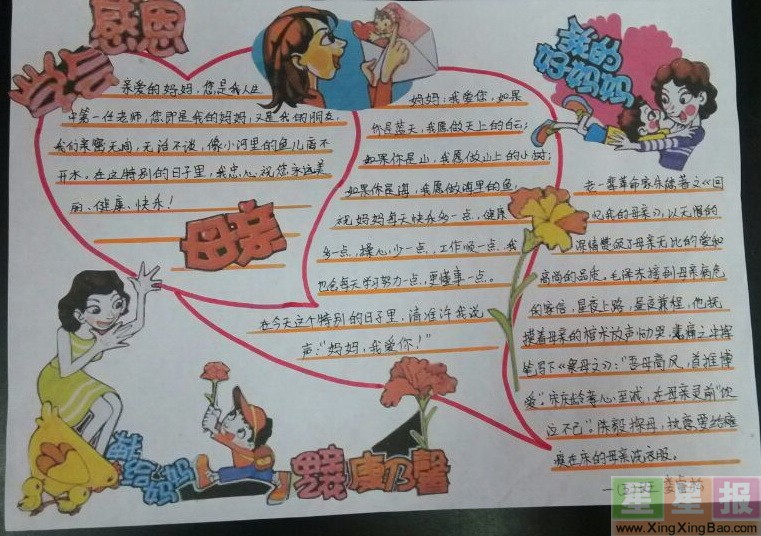 学会
感恩
亲爱的妈妈,您是我人生
中第一任老师,您即是我的妈妈,又是我的朋友,
我们亲密无间,无话不谈,像小河里的鱼儿离不
开水。在这特别的日子里,我忠心祝您永远美
丽、健康、快乐!
母亲
妈妈:我爱您,如果
你是蓝天,我愿做天上的白云;
如果你是山,我愿做山上的小树;
如果你是海,我愿做海里的鱼,
祝妈妈每天快乐多一点,健康
多一点,操心少一点,工作顺一点,我
也会每天学习努力一点,更懂事一点。
在今天这个特别的日子里,请准许我说
声:“妈妈,我爱你!”
我的
好妈妈
老一辈革命家朱德著文《回
忆我的母亲》,以无限的
深情赞颂了母亲无比的爱和
高尚的品质。毛泽东接到母亲病危
的家信,星夜上路,昼夜兼程,他抚
摸着母亲的棺木放声恸哭,悲痛之中挥
笔写下《祭母文》:“吾母高风,首推博
爱”。宋庆龄专心至诚,在母亲灵前“伏
泣不已”。陈毅探母,执意要给瘫
痪在床的母亲洗衣服。
妈妈
康乃馨
星星报
www.XingXingBao.com